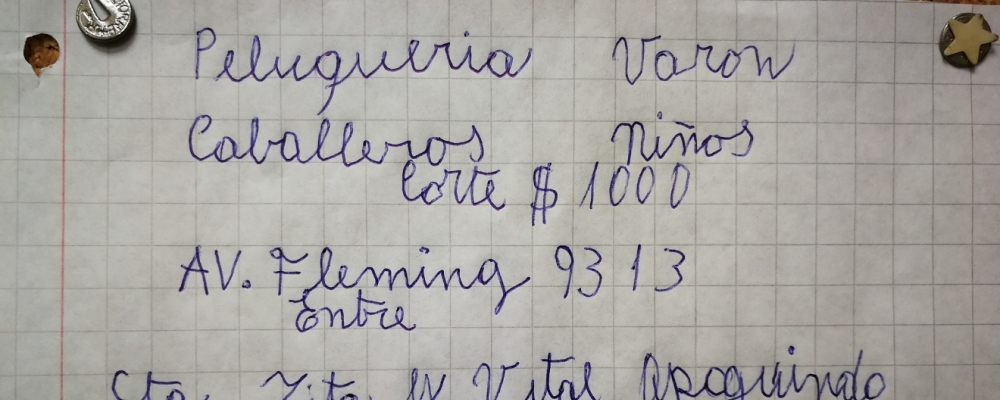 Peluqueria Varon
Caballeros Niños
Corte $ 1000
AV. Fleming 9313
Entre
Sta. Zita W Vital Apoquindo